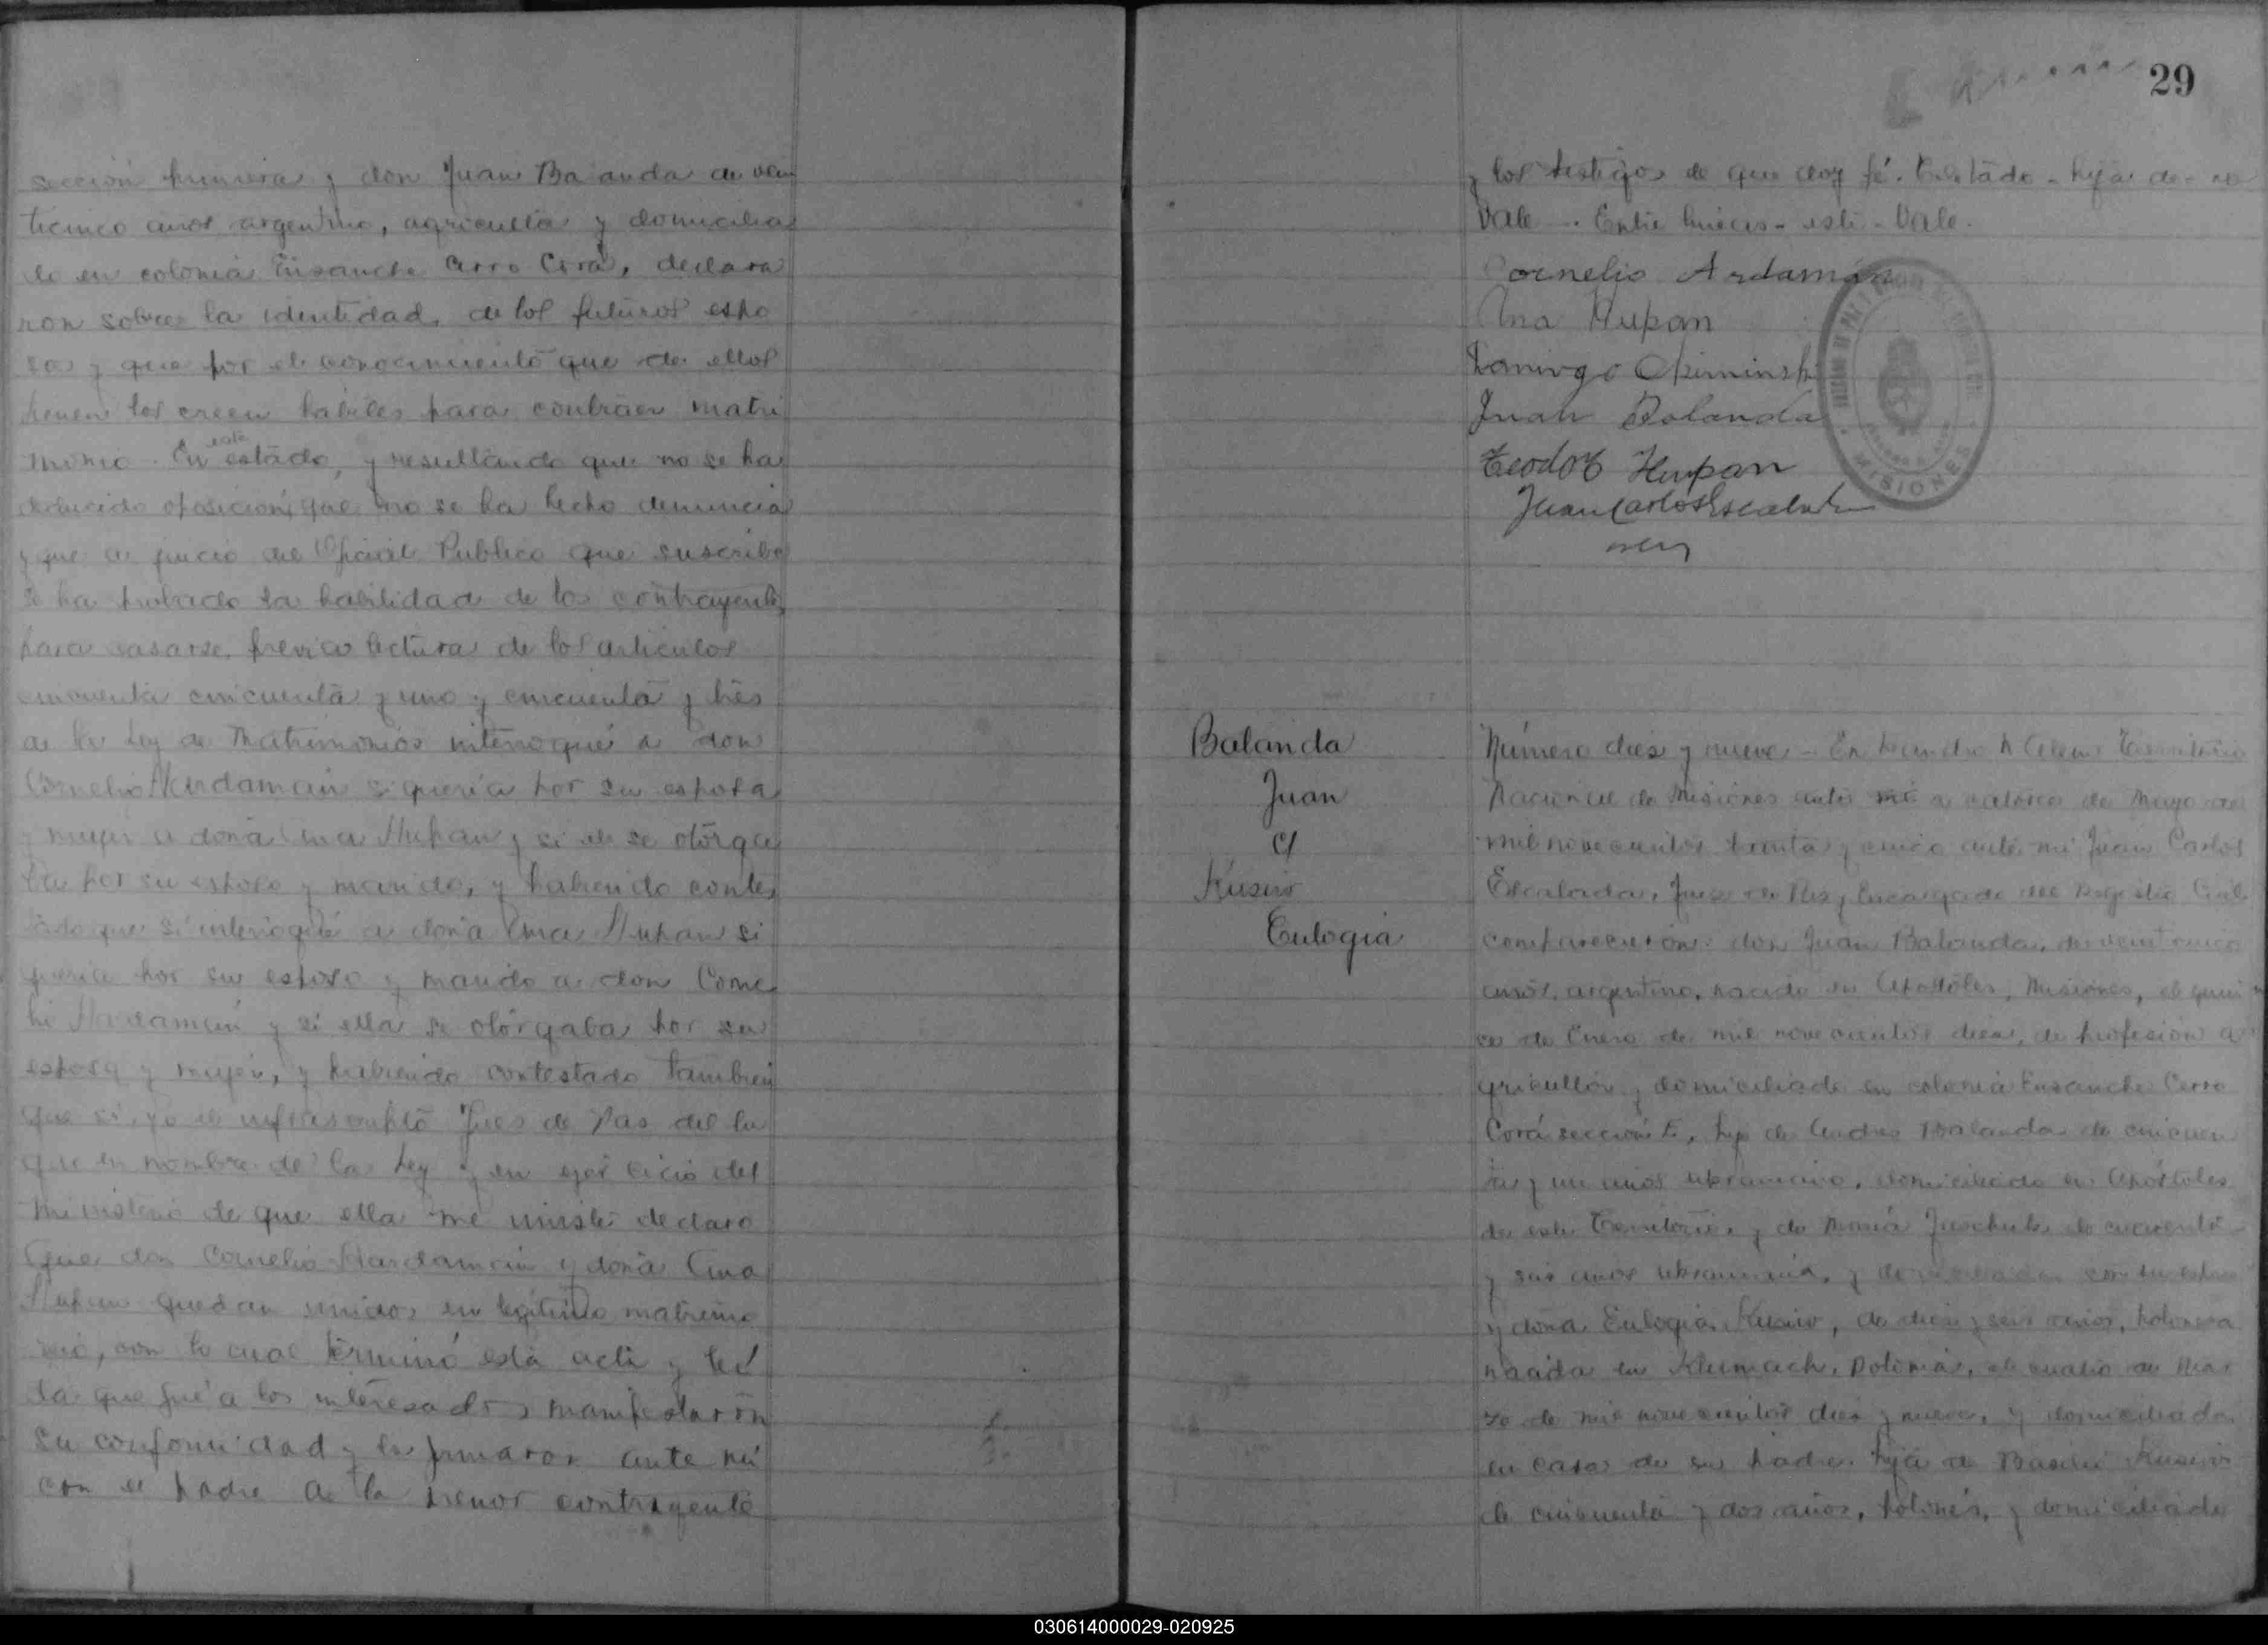 sección primera y don Juan Balanda de vein
ticinco años argentino, agricultor y domicilia
do en colonia Ensanche Cerro Corá, declara
ron sobre la identidad de los futuros espo
sos y que por el conocimiento que de ellos
tienen los creen habiles para contraer matri
monio - En este estado, y resultando que no se ha
deducido oposición, que no se ha hecho denuncia
y que a juicio del Oficial Publico que suscribe
se ha probado la habilidad de los contrayentes
para casarse, previa lectura de los articulos
cincuenta cincuenta y uno y cincuenta y tres
de la Ley de Matrimonios interroqué a don
Cornelio Hardamán si quería por su esposa
y mujer a doña Ana Hupan y si el se otorga
ba por su esposo y marido, y habiendo contes
tado que sí interroqué a doña Ana Hupan si
quería por su esposo y marido a don Corne
lio Hardamán y si ella se otorgaba por su
esposa y mujer, y habiendo contestado tambien
que sí, yo el infrascripto Juez de Paz del lu
gar en nombre de la Ley y en ejercicio del
ministerio de que ella me inviste declaro
Que don Cornelio Hardamán y doña Ana
Hupan quedan unidos en legitimo matrimo
nio, con lo cual terminó esta acta y leí
da que fué a los interesados manifestaron
su conformidad y la firmaron ante mi
con el padre de la menor contrayente
29
y los testigos de que doy fé. Testado - hija de - no
Vale - Entre lineas - este - Vale.
Cornelio Ardamán
Ana Hupan
Domingo
Juan Balanda
Teodor Hupan
Juan Carlos Escalada
MISIONES
Balanda
Juan
c/
Kusiw
Eulogia
Número dies y nueve - En Leandro N Alem Territorio
Nacional de Misiones ante mi a catorce de Mayo de
mil novecientos treinta y cinco ante mi Juan Carlos
Escalada, Juez de Paz y Encargado del Registro Civil
comparecieron: don Juan Balanda, de veinticinco
años, argentino, nacido en Apóstoles, Misiones, el quin
ce de Enero de mil novecientos diez, de profesion a
gricultor y domiciliado en colonia Ensanche Cerro
Corá sección, hijo de Andres Balanda de cincuen
ta y un años ukraniano, domiciliado en Apóstoles
de este Territorio, y de María de cuarenta
y seis años ukraniana, y domiciliada con su esposo
y doña Eulogia Kusiw, de dies y seis años, polonesa
nacida en Polonia, el cuatro de Mar
zo de mil novecientos dies y nueve, y domiciliada
en casa de su padre, hija de Basilio Kusiw
de cincuenta y dos años, polonés, y domiciliado
030614000029-020925